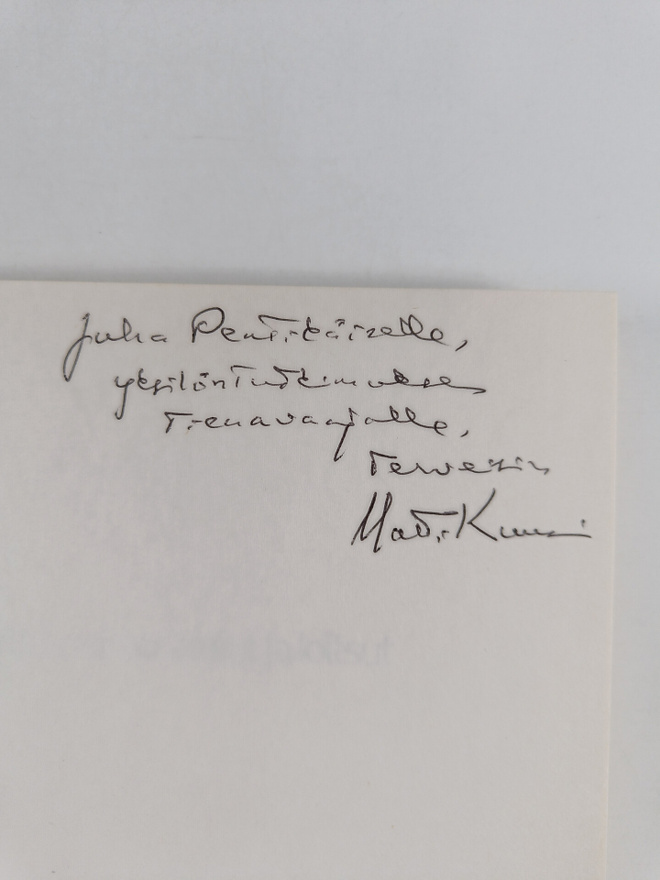 Juha Pentikäiselle,
yksilöntutkimuksen
tienavaajalle,
terveisin
Matti Kuusi